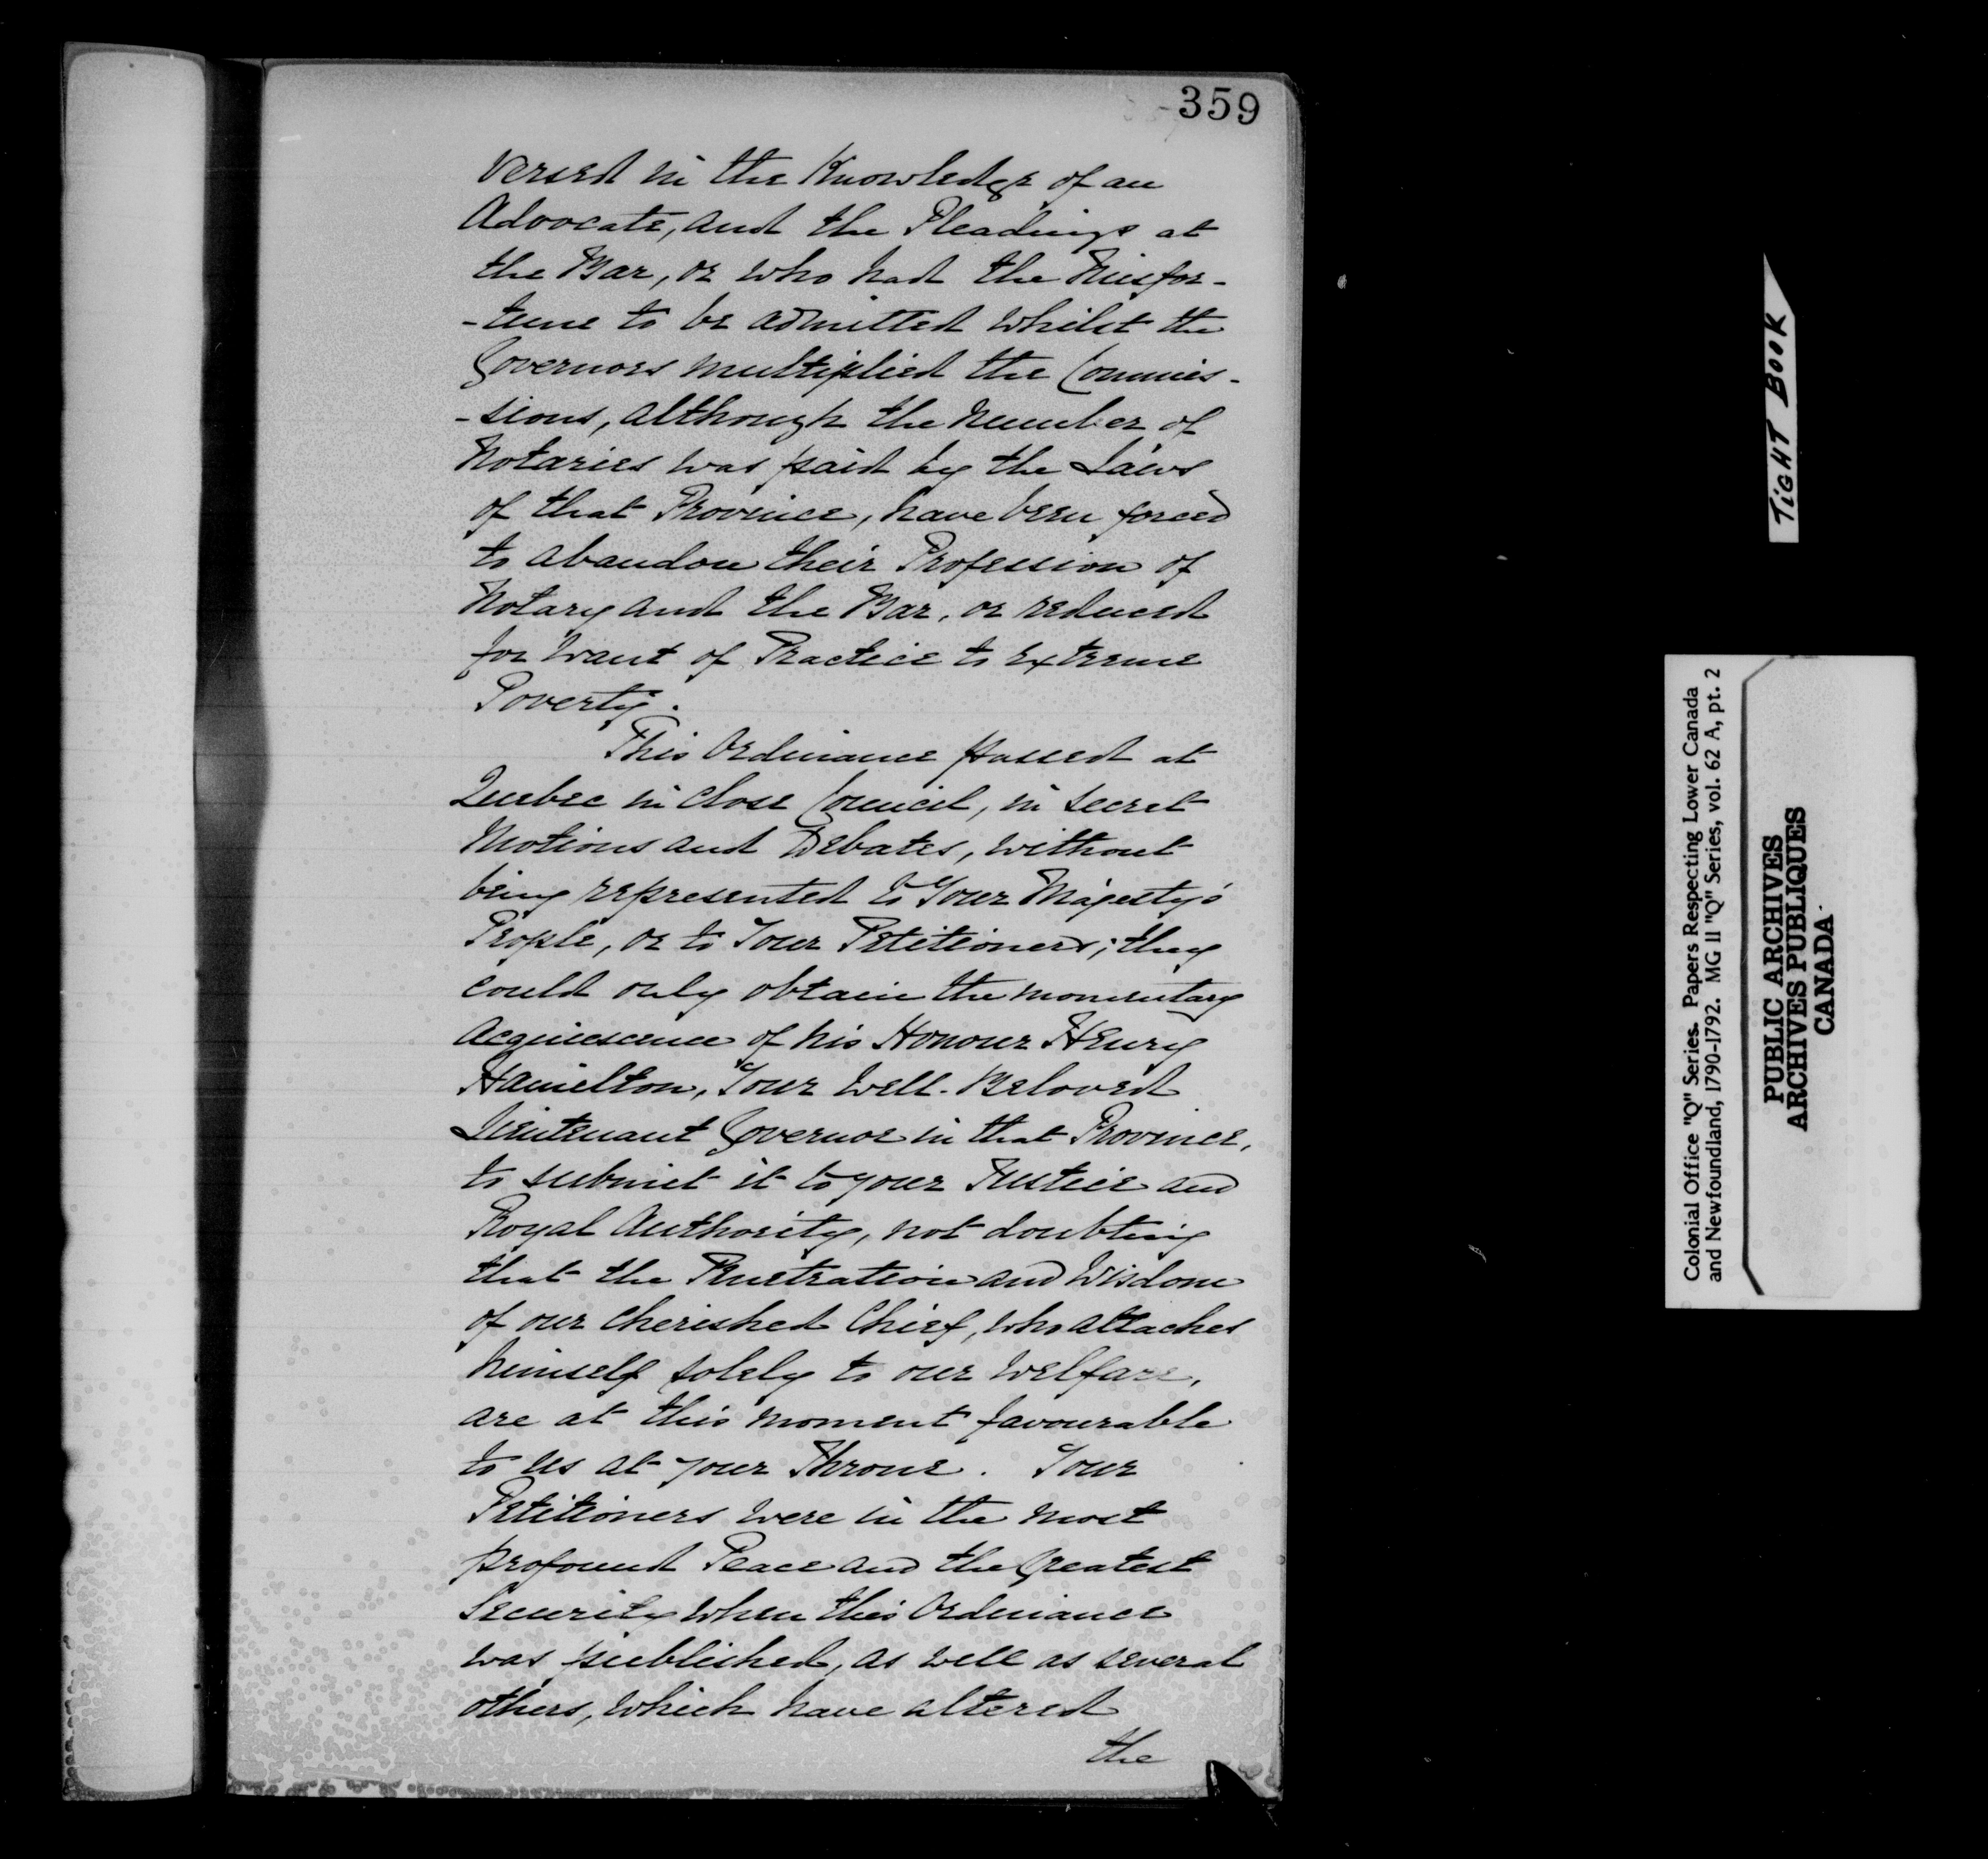 359
versed in the Knowledge of an
Advocate, and the Pleadings at
the Bar, or who had the Misfor-
-tune to be admitted whilst the
Governors multiplied the Commis-
-sions, although the number of
Notaries was paid by the Laws
of that Province, have been forced
to abandon their Profession of
Notary and the Bar, or reduced
for want of Practice to extreme
Poverty.
This Ordinance passed at
Quebec in close Council, in secret
Motions and Debates, without
being represented to Your Majesty's
People, or to Your Petitioners; they
could only obtain the momentary
acquiescence of his Honour Henry
Hamilton, Your Well-Beloved
Lieutenant Governor in that Province,
to submit it to your Justice and
Royal Authority, not doubting
that the Penetration and Wisdom
of our cherished Chief, who attaches
himself solely to our Welfare,
are at this moment favourable
to us at your Throne. Your
Petitioners were in the most
profound Peace and the Greatest
Security when this Ordinance
was published, as well as several
others, which have altered
the
TIGHT BOOK
Colonial Office "Q" Series. Papers Respecting Lower Canada
and Newfoundland, 1790-1792. MG 11 "Q" Series, vol. 62 A, pt. 2
PUBLIC ARCHIVES
ARCHIVES PUBLIQUES
CANADA